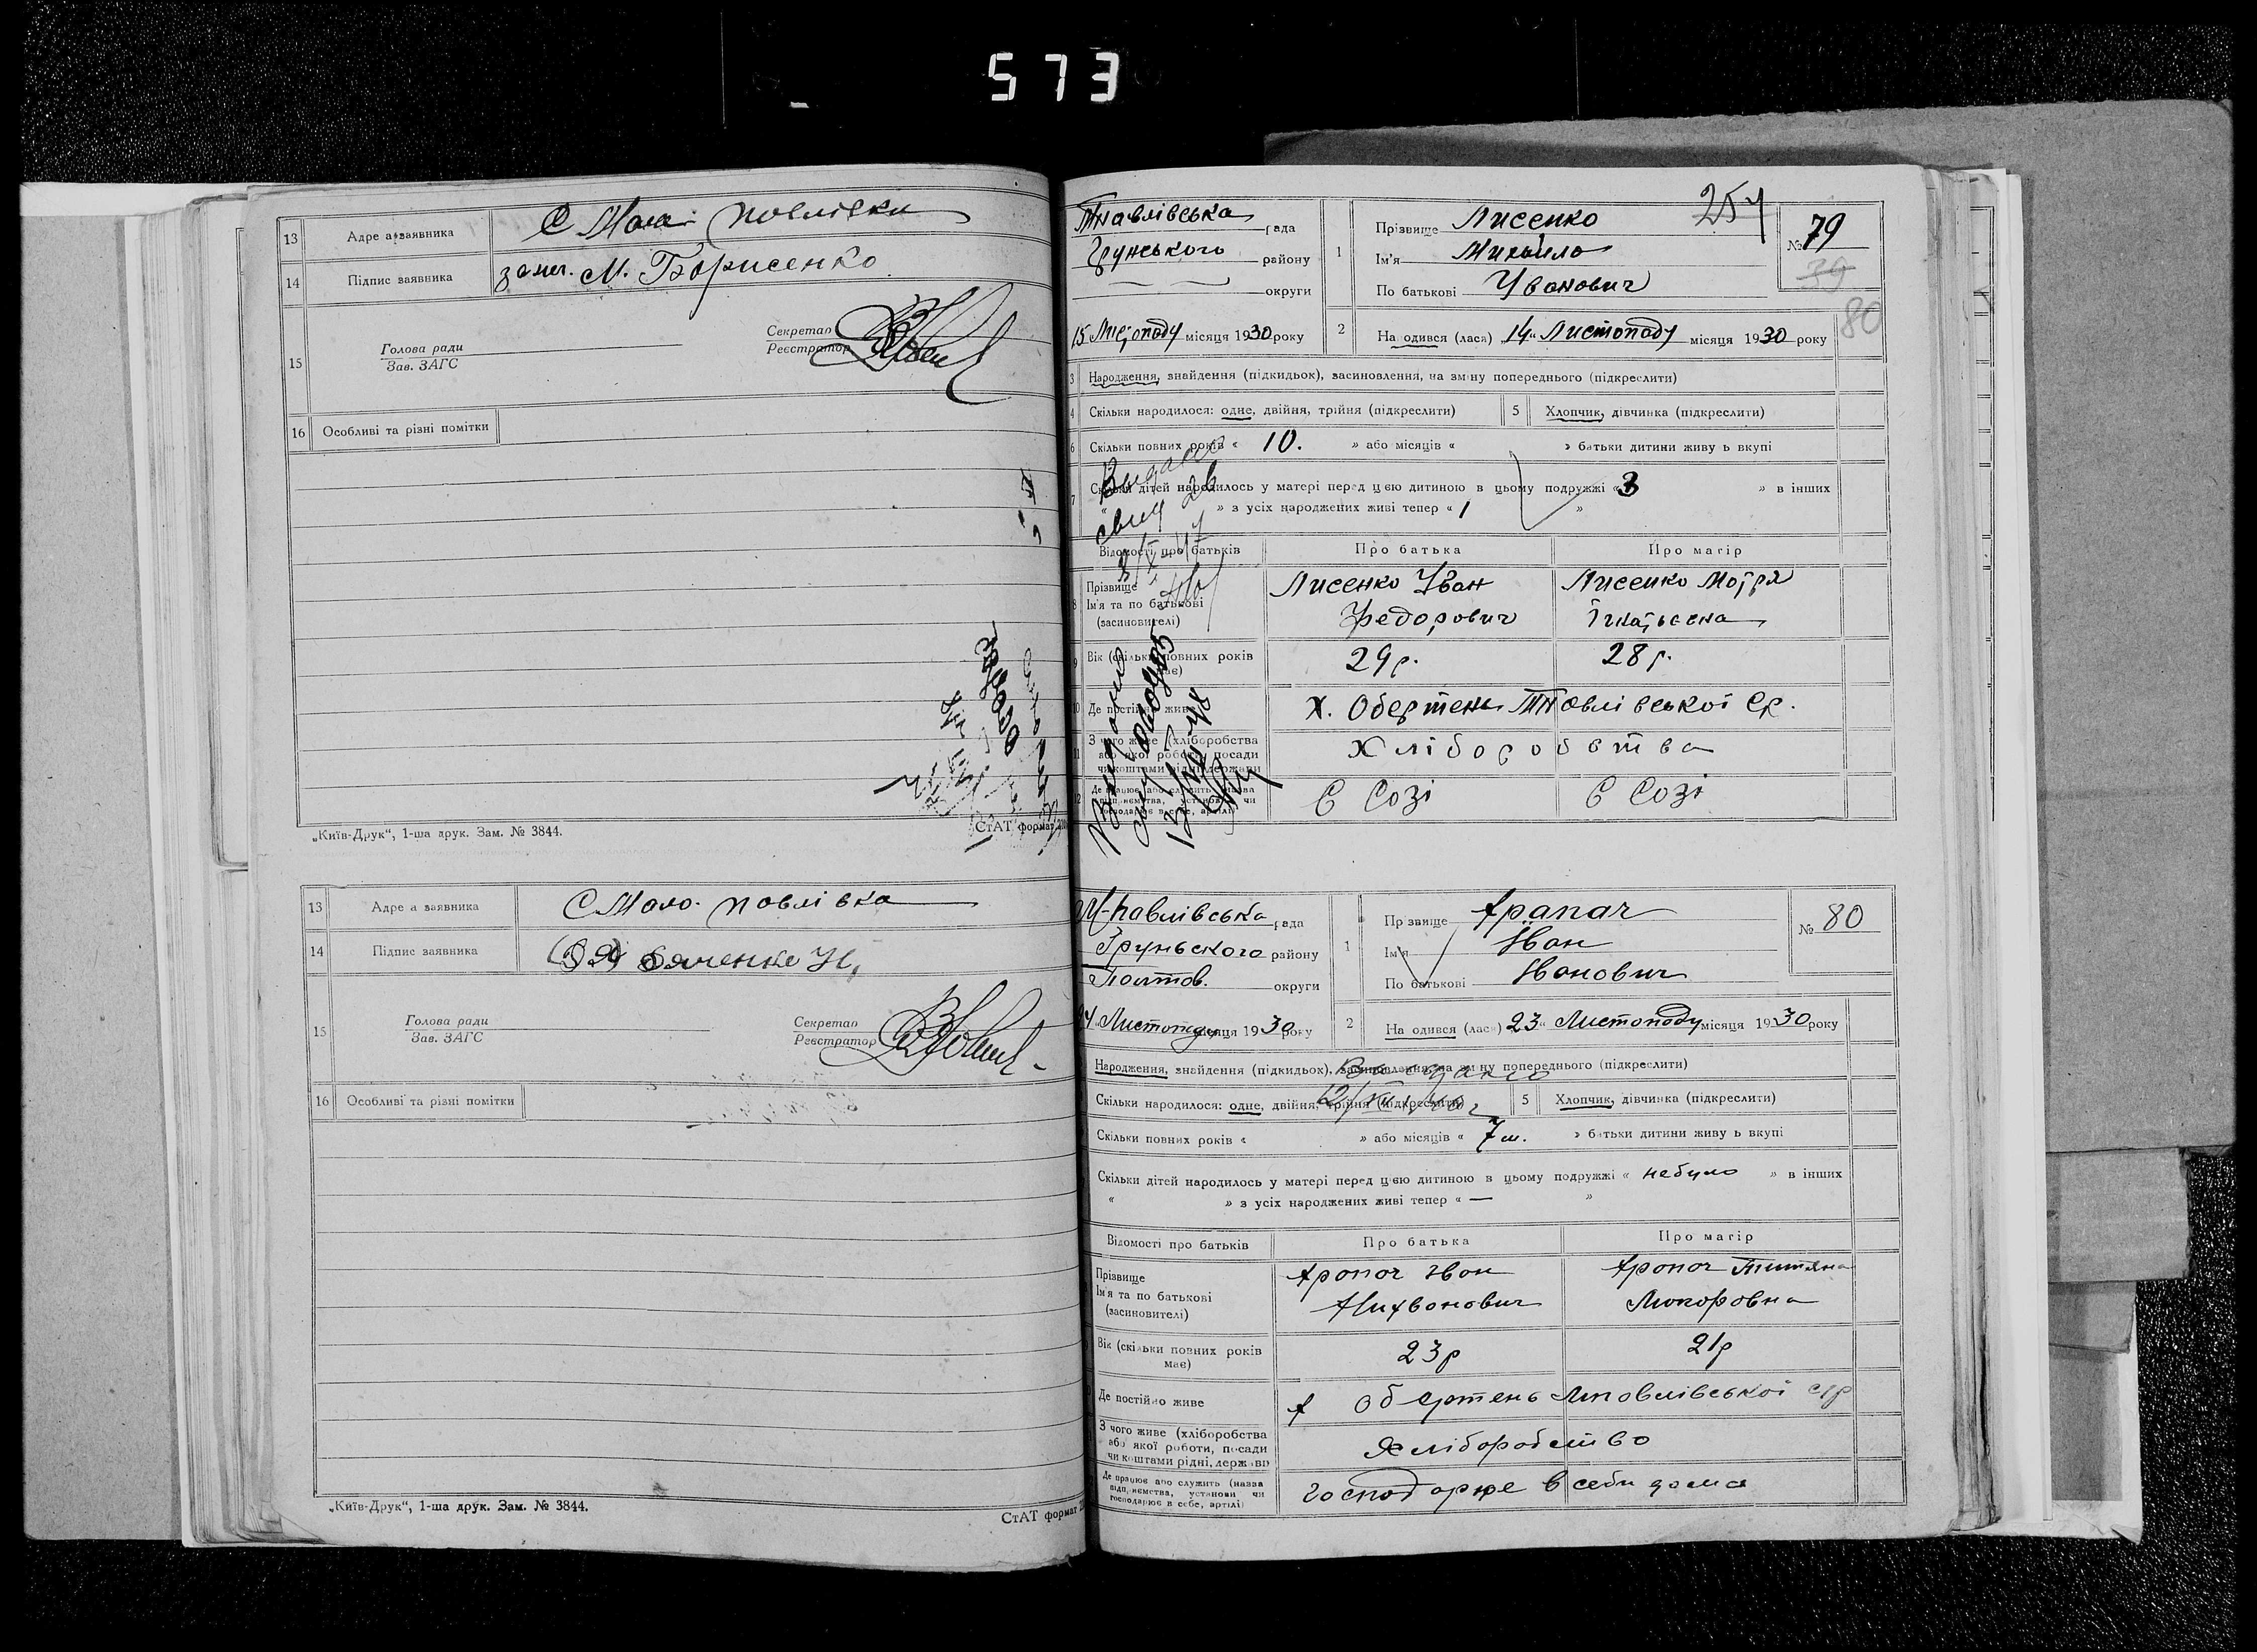 573
13 Адреса заявника С Мала Павлівка
14 Підпис заявника М. Борисенко
15 Голова ради
Зав. ЗАГС
Секретар
Реєстратор
16 Особливі та різні помітки
„Київ-Друк“, 1-ша друк. Зам. № 3844.
СтАТ формат
13 Адреса заявника С Мало-павлівка
14 Підпис заявника
15 Голова ради
Зав. ЗАГС
Секретар
Реєстратор
16 Особливі та різні помітки
„Київ-Друк“, 1-ша друк. Зам. № 3844.
СтАТ формат
257
Мпавлівська рада
Грунського району
округи
1 Прізвище Лисенко
Ім'я Михайло
По батькові Іванович
№ 79
39
80
15 Листопаду місяця 1930 року
2 На одився (лася) „14“ Листопаду місяця 1930 року
3 Народження, знайдення (підкидьок), засиновлення, на зміну попереднього (підкреслити)
4 Скільки народилося: одне, двійня, трійня (підкреслити) 5 Хлопчик, дівчинка (підкреслити)
6 Скільки повних років « 10. » або місяців « » батьки дитини живу ь вкупі
7 Скільки дітей народилось у матері перед цією дитиною в цьому подружжі « 3 » в інших
« » з усіх народжених живі тепер « 1 »
Відомості про батьків Про батька Про матір
8 Прізвище
Ім'я та по батькові
(засиновителі)
Лисенко Іван
Федорович
Лисенко Мотря
Ігнатьєвна
9 Вік (скільки повних років має) 29р. 28р.
10 Де постійно живе Х. Обертень Мпавлівської Ср.
11 З чого живе (хліборобства
або якої роботи, посади
чи коштами рідні, держави
Хліборобства
12 Де працює або служить (назва
підприємства, установи чи
господарює в себе, артілі)
Є Созі Є Созі
М-павлівська рада
Груньского району
Полтов. округи
1 Прізвище Арапач
Ім'я Іван
По батькові Іванович
№ 80
24 Листопаду місяця 1930 року
2 На одився (лася) 23“ Листопаду місяця 1930 року
Народження, знайдення (підкидьок), засиновлення, на зміну попереднього (підкреслити)
Скільки народилося: одне, двійня, трійня (підкреслити) 5 Хлопчик, дівчинка (підкреслити)
Скільки повних років « » або місяців « 7 м. » батьки дитини живу ь вкупі
Скільки дітей народилось у матері перед цією дитиною в цьому подружжі « небуло » в інших
« » з усіх народжених живі тепер « — »
Відомості про батьків Про батька Про матір
Прізвище
Ім'я та по батькові
(засиновителі)
Арапач Іван
Арапач Титяна
Макаровна
Вік (скільки повних років має) 23р 21р
Де постійно живе х Обертень Мпавлівської с/р
З чого живе (хліборобства
або якої роботи, посади
чи коштами рідні, держави
Хліборобство
Де працює або служить (назва
підприємства, установи чи
господарює в себе, артілі)
господарює в себи дома